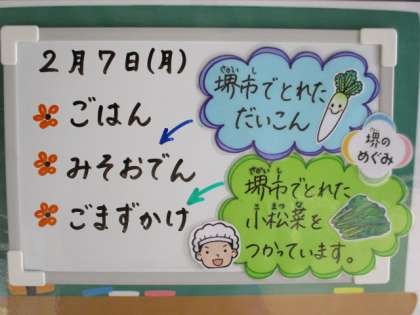 2月7日(月)
ごはん
みそおでん
ごまずかけ
さかいし
堺市でとれた
だいこん
堺の
めぐみ
さかいし
堺市でとれた
こまつな
小松菜を
つかっています。